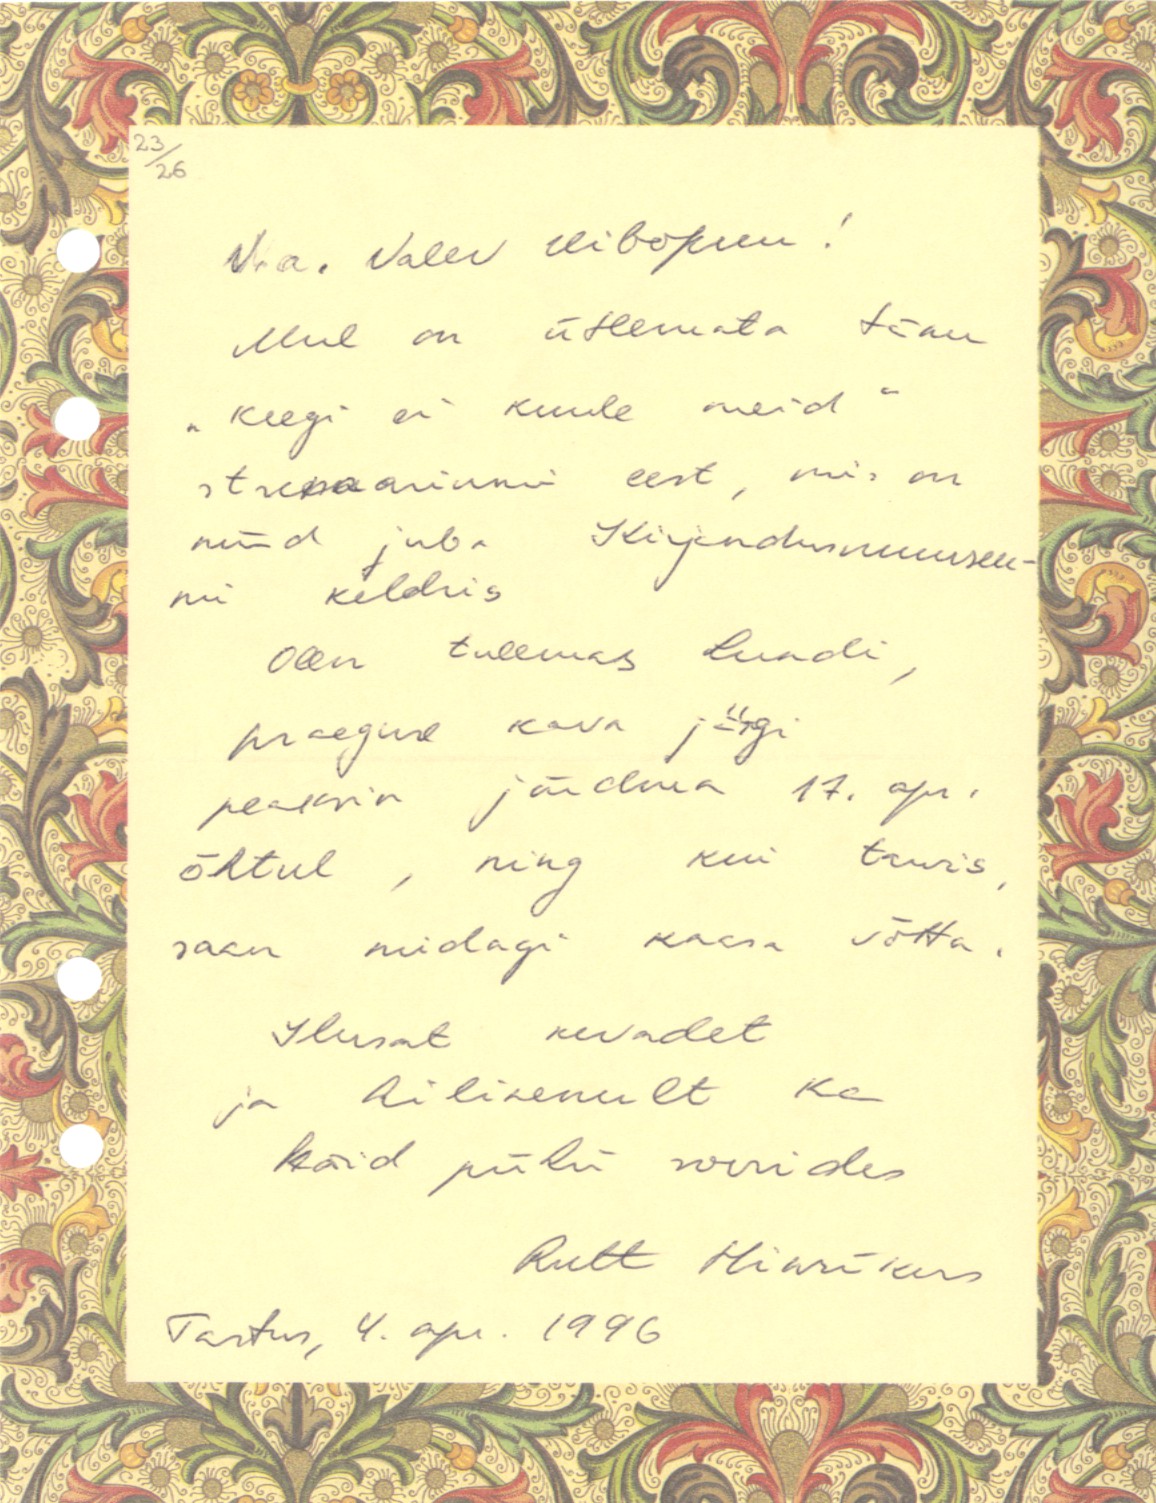 23/26
V.a. Valev Uibopuu!
Mul on ütlemata tänu
„Keegi ei kuule meid"
stsenaariumi eest, mis on
nüüd juba Kirjandusmuuseu-
mi keldris
Olen tulemas Lundi,
praeguse kava järgi
peaksin jõudma 17. apr.
õhtul, ning kui tarvis,
saan midagi kaasa võtta.
Ilusat kevadet
ja hilisenult ka
häid pühi soovides
Rutt Hinrikus
Tartus, 4. apr. 1996